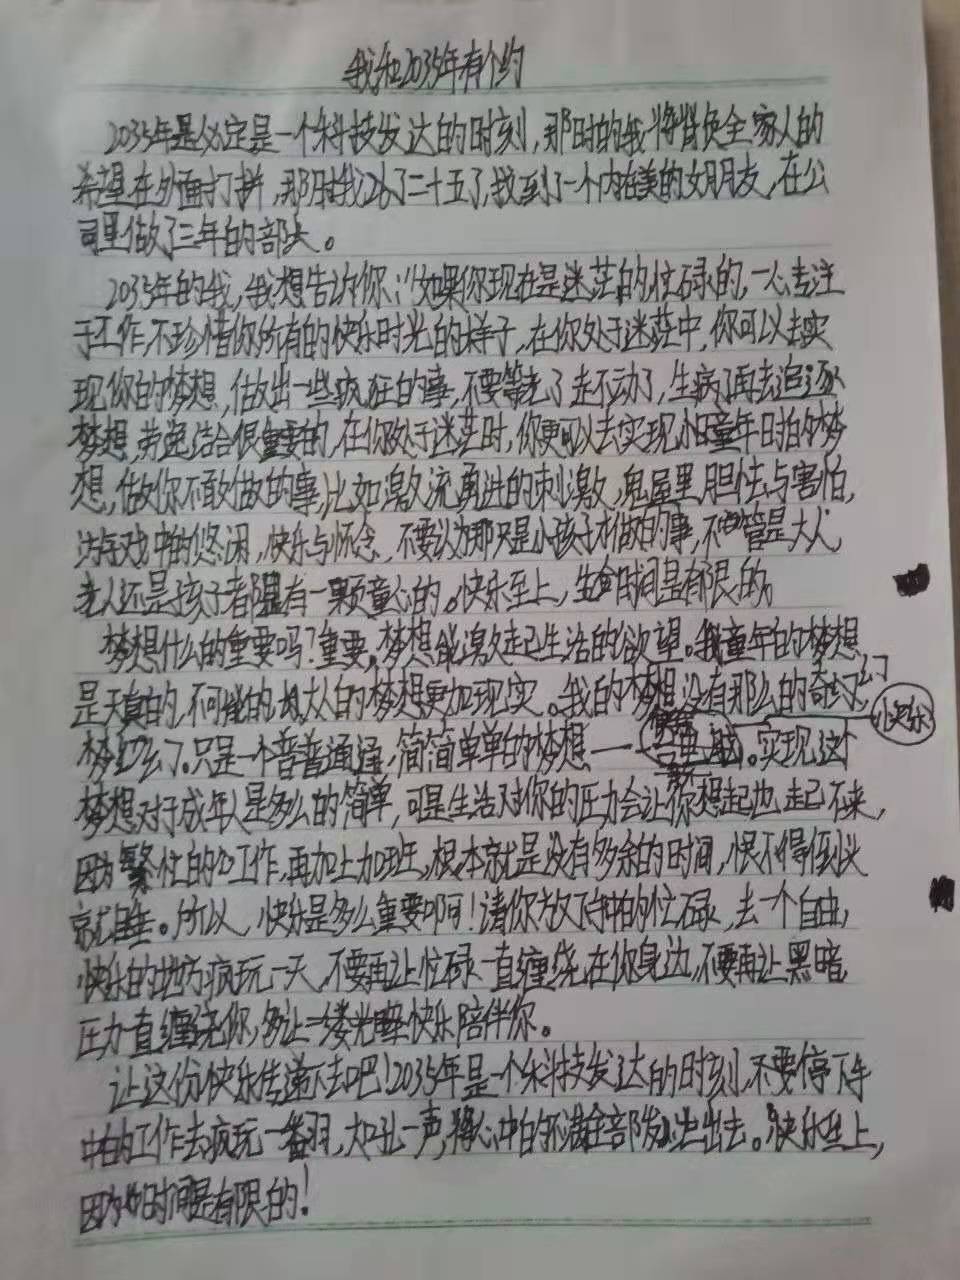 我和2035年有个约
2035年是必定是一个科技发达的时刻,那时的我将背负全家人的
希望在外面打拼,那时我26了二十五了,找到了一个内在美的女朋友,在公
司里做了三年的部长。
2035年的我,我想告诉你:"如果你现在是迷茫的忙碌的,一心专注
于工作,不珍惜你所有的快乐时光的样子,在你处于迷茫中,你可以去实
现你的梦想,做出一些疯狂的事,不要等老了走不动了,生病了再去追逐
梦想,劳逸结合很重要的,在你处于迷茫时,你更可以去实现小时童年时的梦
想,做你不敢做的事,比如激流勇进的刺激,鬼屋里胆怯与害怕,
游戏中的悠闲,快乐与怀念,不要认为那只是小孩子才做的事,不管是大人,
老人还是孩子都是有一颗童心的。快乐至上,生命时间是有限的。
梦想什么的重要吗?重要,梦想能激起生活的欲望。我童年的梦想
是天真的,不可能的,大人的梦想更加现实。我的梦想没有那么的奇幻
了。只是一个普普通通,简简单单的梦想——。实现这个
快乐
梦想对于成年人是多么的简单,可是生活对你的压力会让你想起也起不来,
因为繁忙的工作,再加上加班,根本就是没有多余的时间,恨不得低头
就睡。所以,快乐是多么重要啊!请你放下手中的忙碌,去一个自由,
快乐的地方疯玩一天,不要再让忙碌一直缠绕在你身边,不要再让黑暗
压力一直缠绕你,多让一缕光和快乐陪伴你。
让这份快乐传递下去吧!2035年是一个科技发达的时刻,不要停下手
中的工作去疯玩一番,大吼一声,将心中的不满全部发泄出去。快乐至上,
因为时间是有限的!